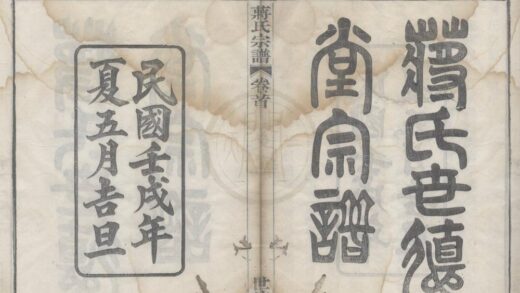 蔣氏世德
堂宗譜
蔣氏宗譜 卷首 世
民國壬戌年
夏五月吉旦